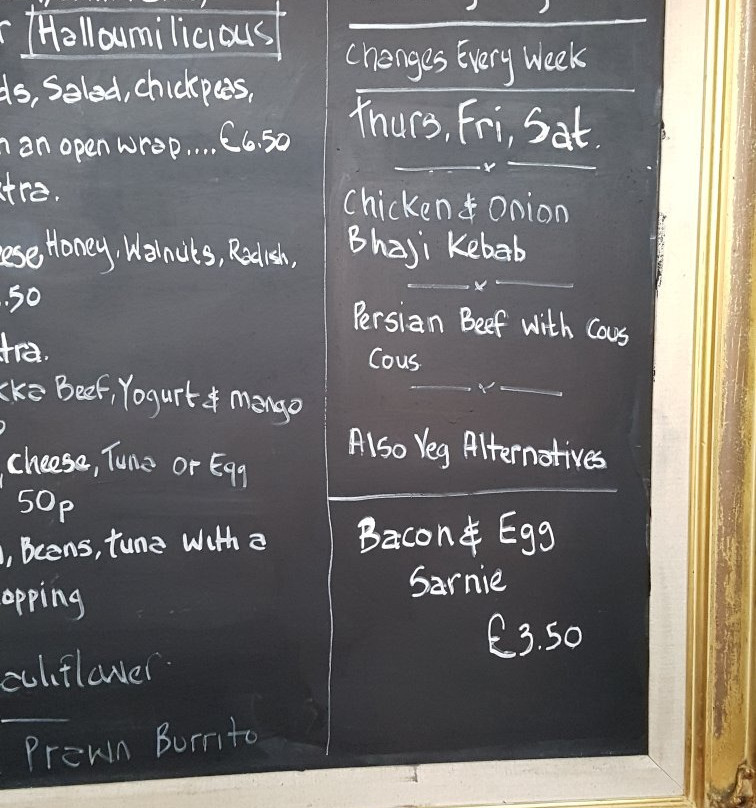 Halloumilicious
Salad, chickpeas,
an open wrap....£6.50
Honey, Walnuts, Radish,
.50
Beef, Yogurt & mango
Cheese, Tuna or Egg
50p
Beans, tuna with a
Prawn Burrito
Changes Every Week
Thurs, Fri, Sat.
Chicken & Onion
Bhaji Kebab
Persian Beef with Cous
Cous
Also Veg Alternatives
Bacon & Egg
Sarnie
£3.50